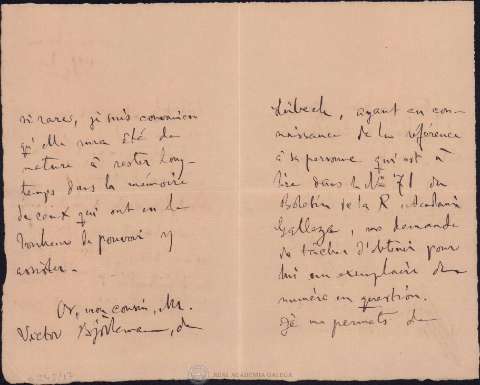 si rare, je suis convaincu
qu'elle aura été de
nature à rester long-
temps dans la mémoire
de ceux qui ont eu le
bonheur de pouvoir y
assister.
Or, mon cousin, Mr.
Victor de
Lübeck, ayant eu con-
naissance de la référence
à sa personne qui est à
lire dans le No 71 du
Boletin de la R. Academia
Gallega, me demande
de tâcher d'obtenir pour
lui un exemplaire du
numéro en question.
Je me permets de
REAL ACADEMIA GALEGA